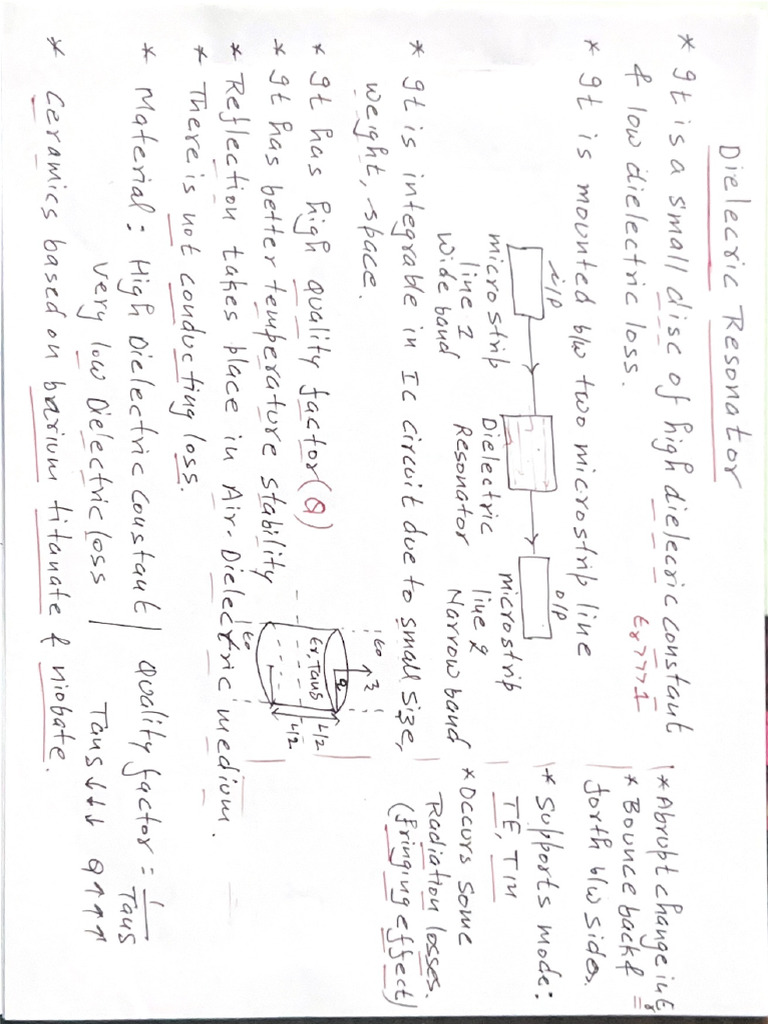 Dielecric Resonator
* It is a small disc of high dielecric constant
& low dielectric loss.
εr>>>1
* It is mounted b/w two microstrip line
i/p
o/p
microstrip
line 1
Wide band
Dielectric
Resonator
microstrip
line 2
Narrow band
* It is integrable in IC circuit due to small size,
weight, space.
* It has high quality factor (Q)
* It has better temperature stability
* Reflection takes place in Air-Dielectric medium.
* There is not conducting loss.
* Material: High Dielectric constant
Very low Dielectric loss
quality factor = 1/Tanδ
Tanδ↓↓↓ Q↑↑↑
* Ceramics based on barium titanate & niobate.
ε0
z
a
εr, Tanδ
L/2
L/2
ε0
* Abrupt change in εr
* Bounce back &
forth b/w sides.
* Supports mode:
TE, TM
* Occurs some
Radiation losses.
(fringing effect)